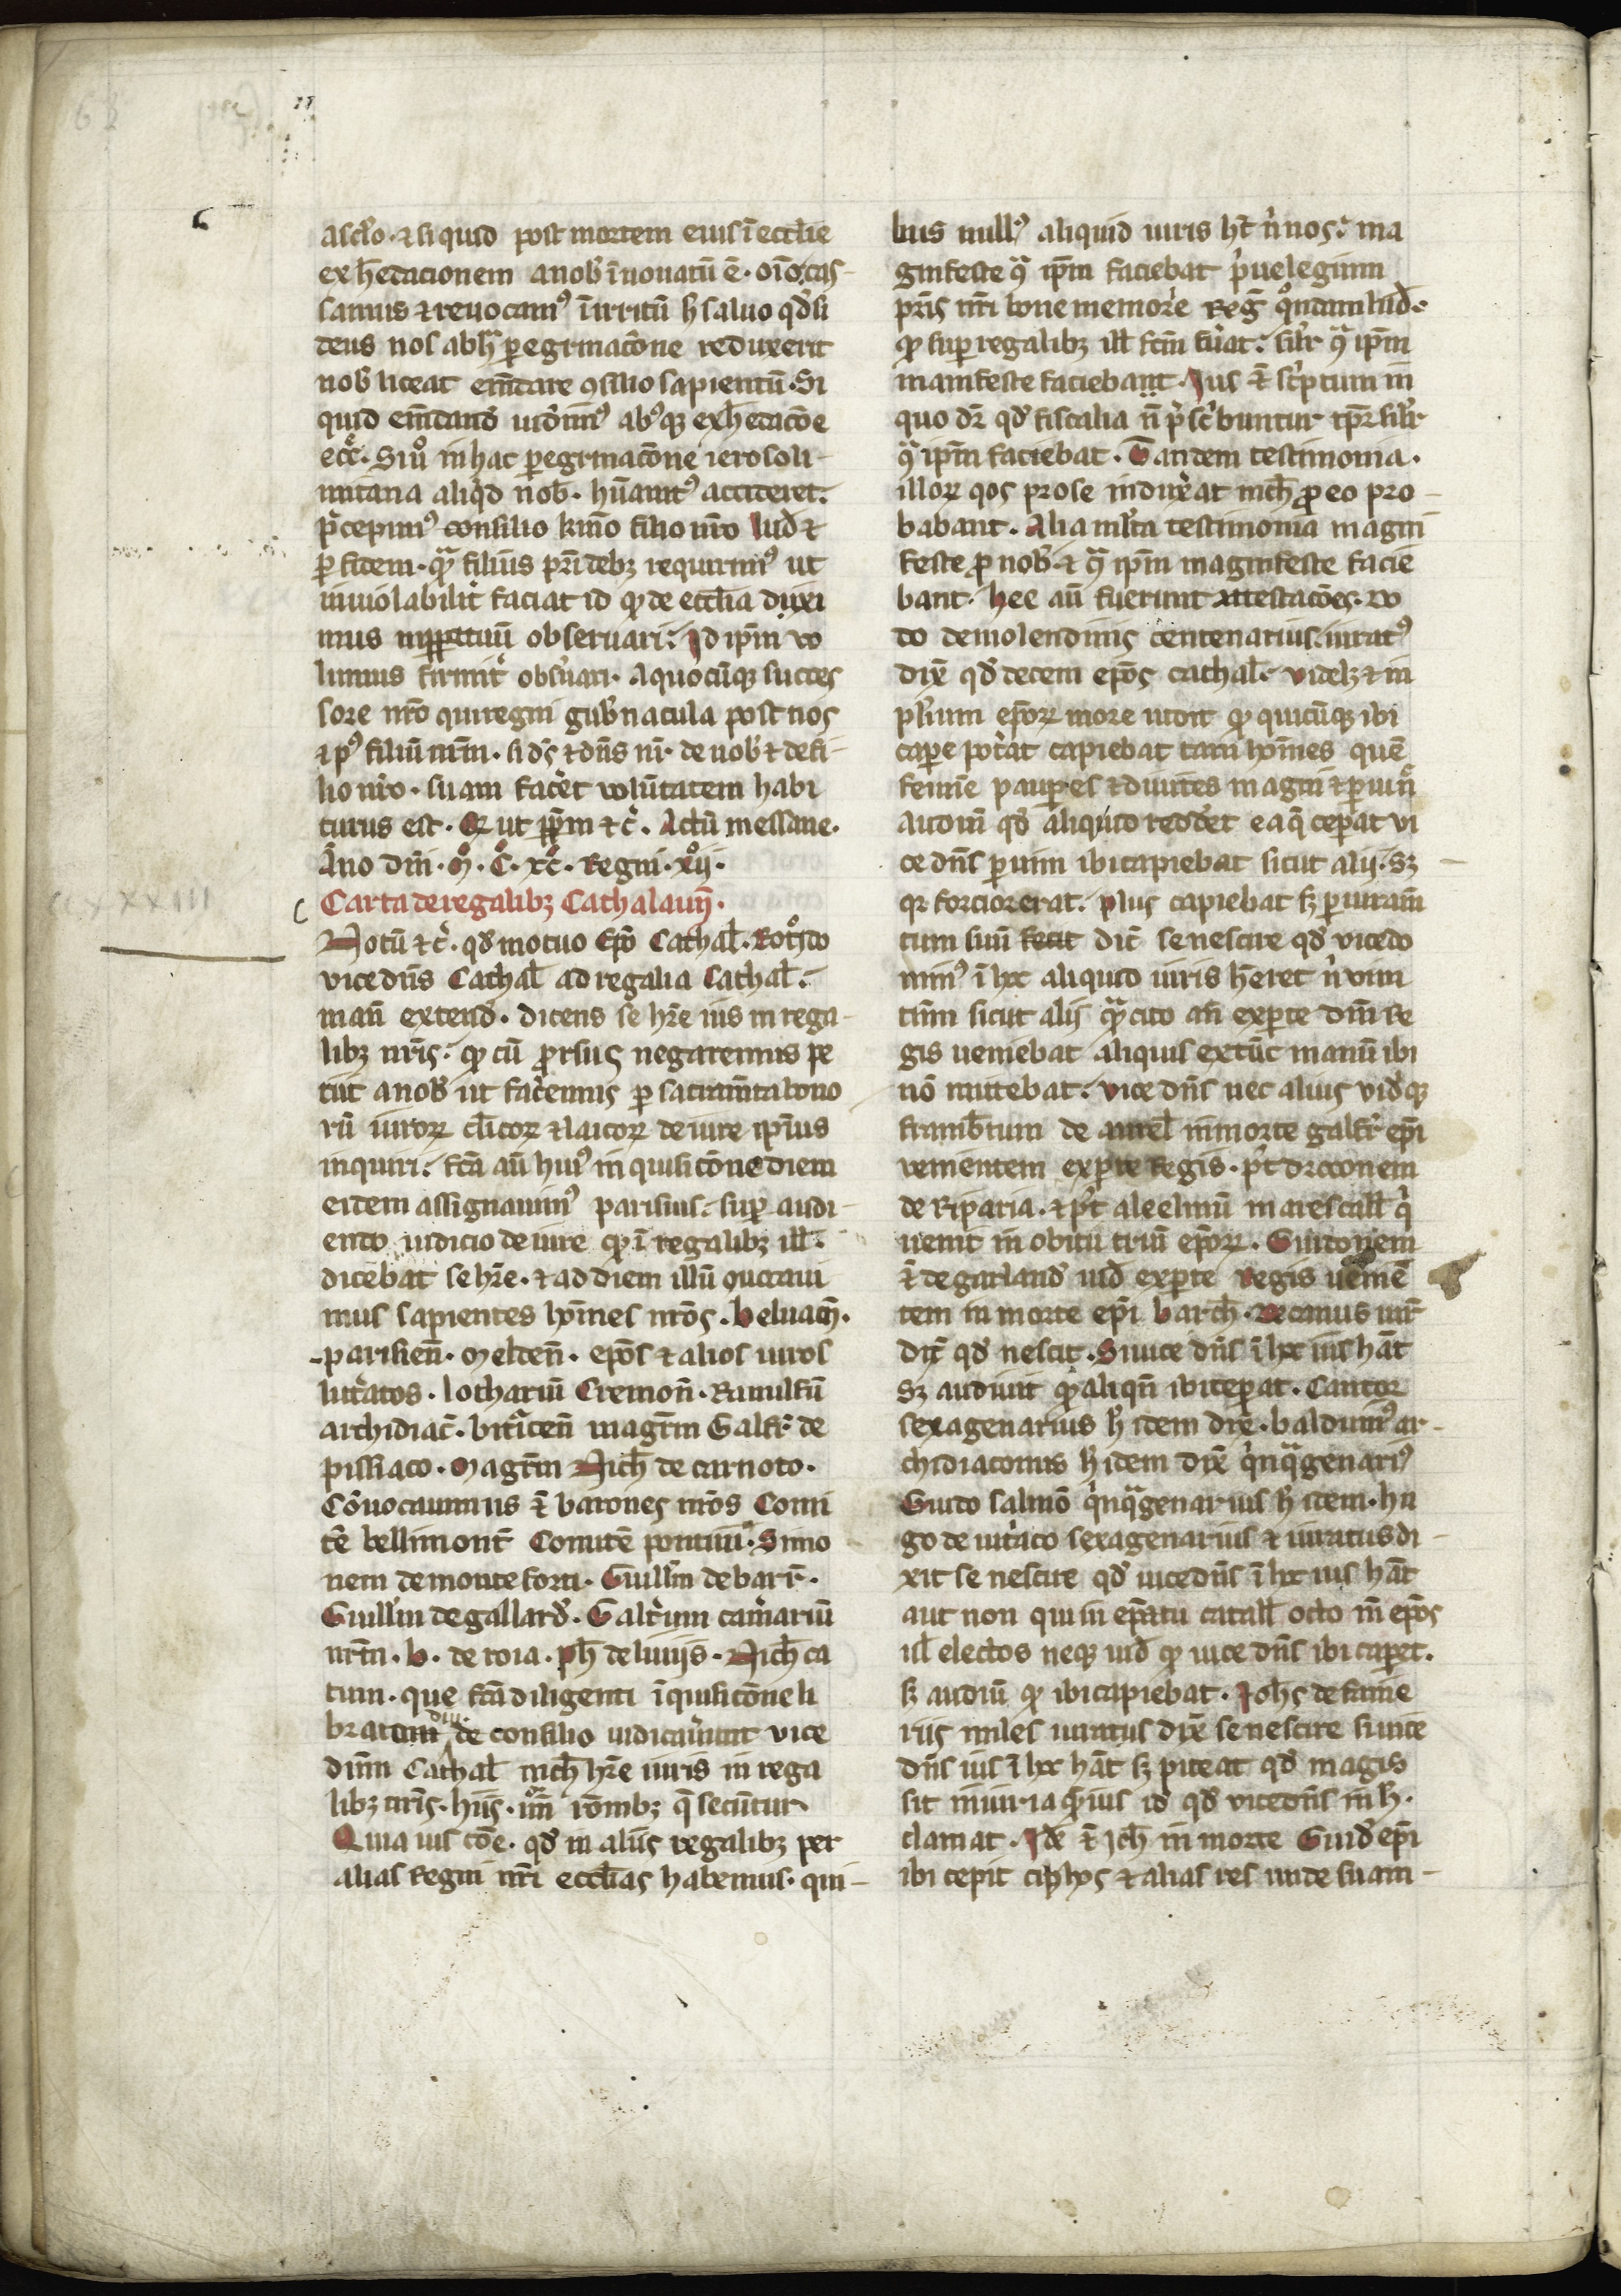 asclo. ⁊ si quid post mortem eius ī eccl̄ie
exh̄edacionem a nob̓ īnouatū ē. oīo cas-
samus ⁊ reuocamꝰ ī irritū ħ saluo qd̓ si
deus nos ab hͣ ꝑegrinac̄one reduxerit
nob̓ liceat em̄dare ꝯsilio sapientū. Si
quid em̄dand̓ uid̓imꝰ absꝙ exh̄edac̄oe
ecc̄. Si u̓o in hac ꝑegrinac̄one ierosoli-
mitana aliq̓d nob̓. hūanitꝰ accideret.
p̓cepimꝰ consilio kmo filio nr̄o lud̓ ⁊
ꝑ fidem. quͣ filius pr̄i debꝫ requirimꝰ ut
inuiolabilit̓ faciat id ꝙ de eccl̄ia dixi
mus in ꝑpetuū obseruari. Id ip̄m uo
lumus firmit̓ obs̓uari. a quocūqꝫ succes
sore nr̄o qui regni gub̓nacula post nos
⁊ pꝰ filiū nr̄m. si dꝰ ⁊ dn̄s nr̄. de nob̓ ⁊ de fi-
lio nr̄o. suam fac̓et uolūtatem habi
turus est. Qꝛ ut ꝑp̄m ⁊c̄. Actū messane.
Āno dn̄i. M̊. C̊. xc̊. Regni. xijͦ.
Carta de regalibꝫ Cathalaun̄.
Notū ⁊c̄. qd̓ motuo ep̄o Cathal̄. Rotͦdo
uice dn̄s Cathal̄ ad regalia Cathal̄.
man̄ extend̓. dicens se hr̄e ius in rega-
libꝫ nr̄is. ꝙ cū ꝓrsus negaremus pe
tiit a nob̓ ut fac̓emus ꝑ sacram̄ta bono
rū uiroꝝ cl̄icoꝝ ⁊ laicoꝝ de iure ip̄ius
inquiri. fc̄a aū huiꝰ inquisic̄one diem
eidem assignauimꝰ parisius. suꝑ audi-
endo iudicio de iure ꝙ ī regalibꝫ ill̄.
dicebat se hr̄e. ⁊ ad diem illū uocaui
mus sapientes hoīnes nr̄os. Beluacn̄.
parisien̄. Melden̄. ep̄os ⁊ alios uiros
litt̓atos. lothariū Cremon̄. Ranulfū
archidiac̄. bit̓icen̄ magr̄m Galfr̄ de
pissiaco. Magr̄m Nich̄ de carnoto.
Cōuocauimus ⁊̄ barones nr̄os Comi
tē bellimont̄ Comitē pontiui. Simo
nem de monteforti. Guill̄m de barr̄.
Guill̄m de gallard̓. Galt̓ium cam̓ariū
nr̄m. b. de roia. ph̄ de luuijs. Nich̄ ca
tum. que fc̄a diligenti ī quisic̄one li
bratam diu de consilio iudicau̓unt uice
dn̄m Cathal̄ nich̄ hr̄e iuris in rega
libꝫ nr̄is. hiis. iiijͦʳ rōnibꝫ q̄ secūtur
Quia ius cōe. qd̓ in aliis regalibꝫ per
alias Regni nr̄i eccl̄ias habemus. qui-
bus nullꝰ aliquid iuris ht̄ n̓ nos. ma
gnifeste q̓ ip̄m faciebat p̓uelegium
pr̄is nr̄i bone memor̓e Reg̓ q̊ndam lud̓.
ꝙ suꝑ regalibꝫ ill̄ fc̄m fu̓at. sil̓r qͣ ip̄m
manifeste faciebant. Jus ⁊̄ sc̓ptum in
quo dr̄ qd̓ fiscalia n̄ p̓sc̓buntur tp̄r sil̓r
qͣ ip̄m faciebat. Tandem testimonia.
illoꝝ qos pro se indux̓at nich̄ ꝓ eo pro-
babant. Alia ml̓ta testimonia magni
feste ꝓ nob̓. ⁊ qͣ ip̄m magnifeste facie
bant. Hee aū fuerunt attestac̄oes. Do
do de molendinis centenarius. iuratꝰ
dix̄ qd̓ decem ep̄os cathal̄. uidelꝫ ⁊ in
pl̓ium ep̄oꝝ morte uidit ꝙ quicūqꝫ ibi
caꝑe pot̓at capiebat tam hoīnes quē
femine pauꝑes ⁊ diuites magni ⁊ ꝑuin̓
Audiu̓ qd̓ aliquito redd̓et ea q̄ ceꝑat ui
ce dn̄s ꝑuim ibi capiebat sicut alij. Sꝫ
qꝛ forcior erat. plus capiebat sꝫ ꝑ iuram̄
tum suū fecit dic̄ se nescire qd̓ uicedo
minꝰ ī hoc aliquid iuris h̄eret n̓ uim
tm̄m sicut alij qͣcito an̄ exꝑte dn̄i Re
gis ueniebat aliquis extūc manū ibi
nō mittebat. Uice dn̄s nec alius uid̓qꝫ
framb̓tum de aurel̄ in morte galfr̄ ep̄i
uenientem exꝑte Regis. p̓t droconem
de Riparia. ⁊ p̓t aleelmū marescall̄ q̓
uenit in obitu triū ep̄oꝝ. Guidonem
⁊̄ de garland̓ uid̓ exꝑte Regis ueniē
tem in morte ep̄i barth̄. Decanus iur̄
dix̄ qd̓ nescit. Si uice dn̄s ī hoc ius hāt
Sꝫ audiuit ꝙ aliqn̄ ibi ceꝑat. Cantor
sexagenarius ħ idem dix̄. balduinꝰ ar-
chidiaconus ħ idem dix̄ q̓nqͣgenariꝰ
Guido salmō q̓nqͣgenarius ħ idem. hu
go de uit̓aco sexagenarius ⁊ iuratus di-
xit se nescire qd̓ uicedn̄s ī hoc ius hāt
aut non qui in ep̄atu catall̄ octo in̄ ep̄os
ul̄ electos neqꝫ uid̓ ꝙ uice dn̄s ibi caꝑet.
sꝫ audiū ꝙ ibi capiebat. Joh̄s de fame
riis miles iuratus dix̄ se nescire si uice
dn̄s ius ī hoc hāt sꝫ puteat qd̓ magis
sit iniuria qͣ ius id qd̓ uicedn̄s in ħ.
clamat. Jdē ⁊̄ Jch̄ in morte Guid̓ ep̄i
ibi cepit ciphos ⁊ alias res unde suam-